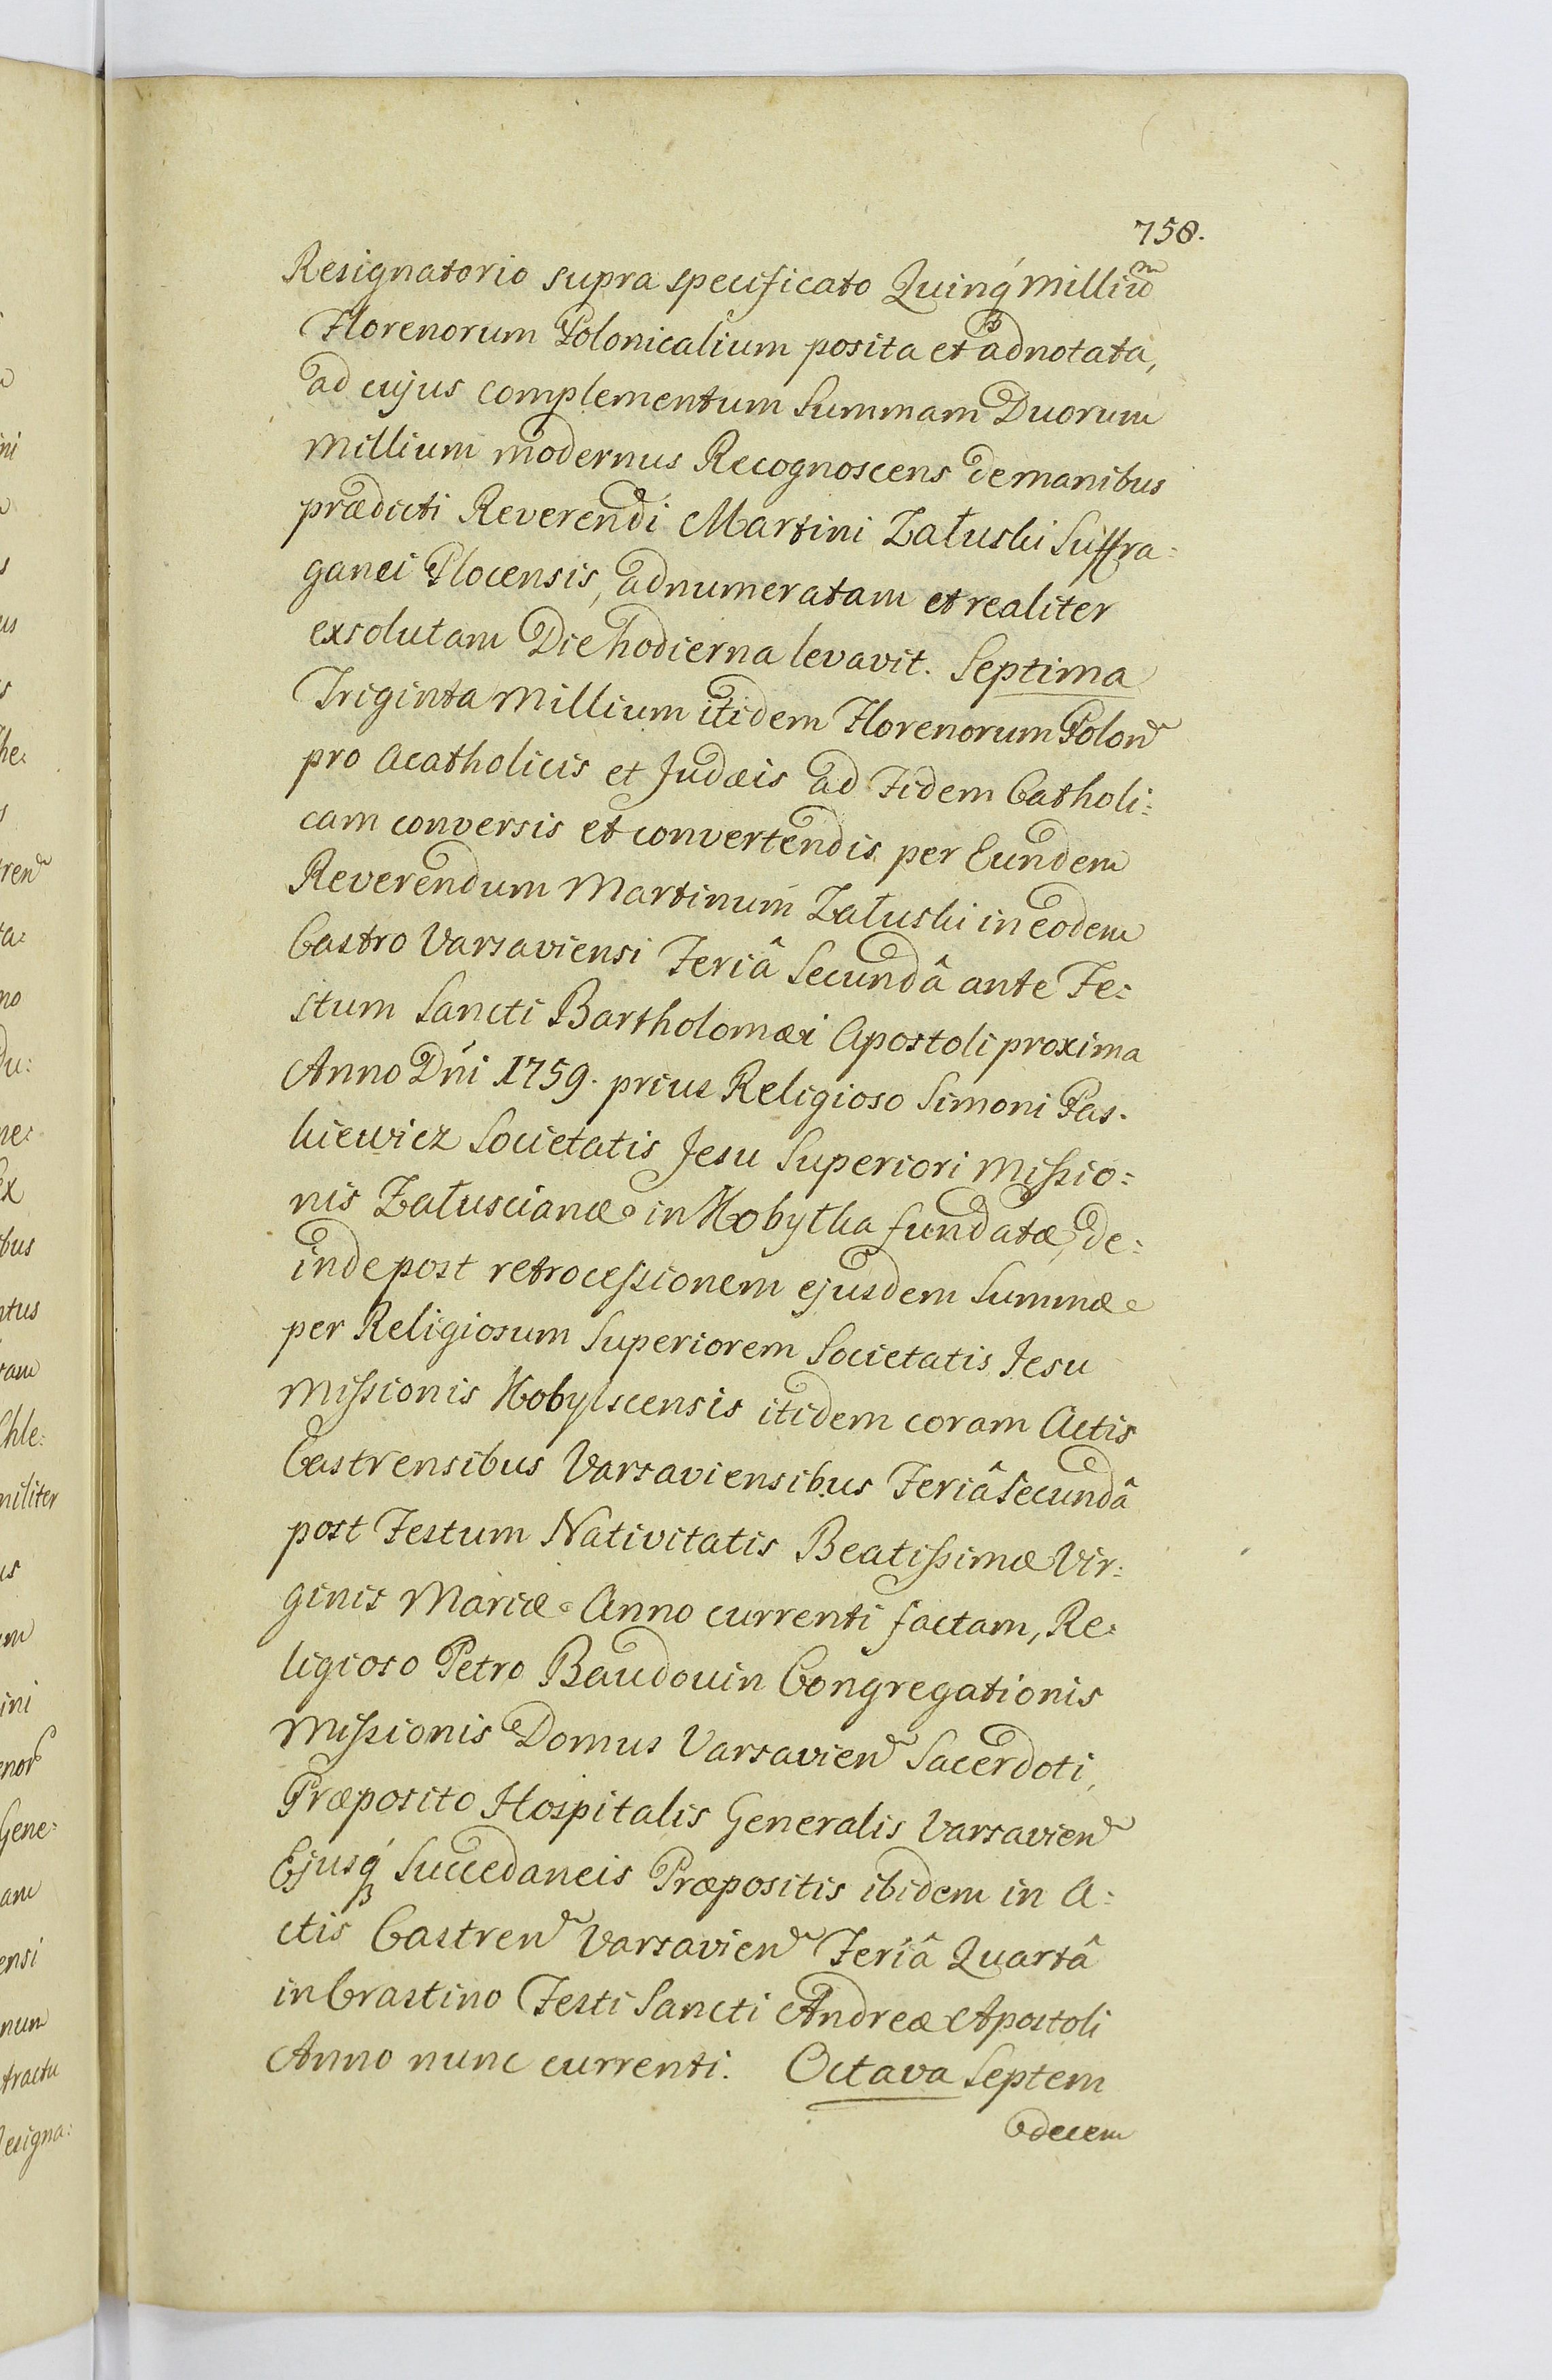 758.
Resignatorio supra specificato Quinq́ Milliu͠m
Florenorum Polonicalium posita et adnotata,
ad cujus complementum Summam Duorum
Millium modernus Recognoscens de manibus
prædicti Reverendi Martini Załuski Suffra=
ganei Plocensis, adnumeratam et realiter
exsolutam Die hodierna levavit. Septima
Triginta Millium itidem Florenorum Polon
pro Acatholicis et Judæis ad Fidem Catholi=
cam conversis et convertendis per Eundem
Reverendum Martinum Załuski in eodem
Castro Varsaviensi Feriâ Secundâ ante Fe=
stum Sancti Bartholomæi Apostoli proxima
Anno Dńi 1759. prius Religioso Simoni Pas-
kiewicz Societatis Jesu Superiori Missio=
nis Załuscianæ in Kobyłka fundatæ, de=
inde post retrocessionem ejusdem Summæ
per Religiosum Superiorem Societatis Jesu
Missionis Kobylscensis itidem coram Actis
Castrensibus Varsaviensibus Feriâ Secundâ
post Festum Nativitatis Beatissimæ Vir=
ginis Mariæ Anno currenti factam, Re=
ligioso Petro Baudouin Congregationis
Missionis Domus Varsavien Sacerdoti,
Præposito Hospitalis Generalis Varsavien
Ejusq́ Succedaneis Præpositis ibidem in A=
ctis Castren Varsavien Feriâ Quartâ
in Crastino Festi Sancti Andreæ Apostoli
Anno nunc currenti. Octava Septem
decem